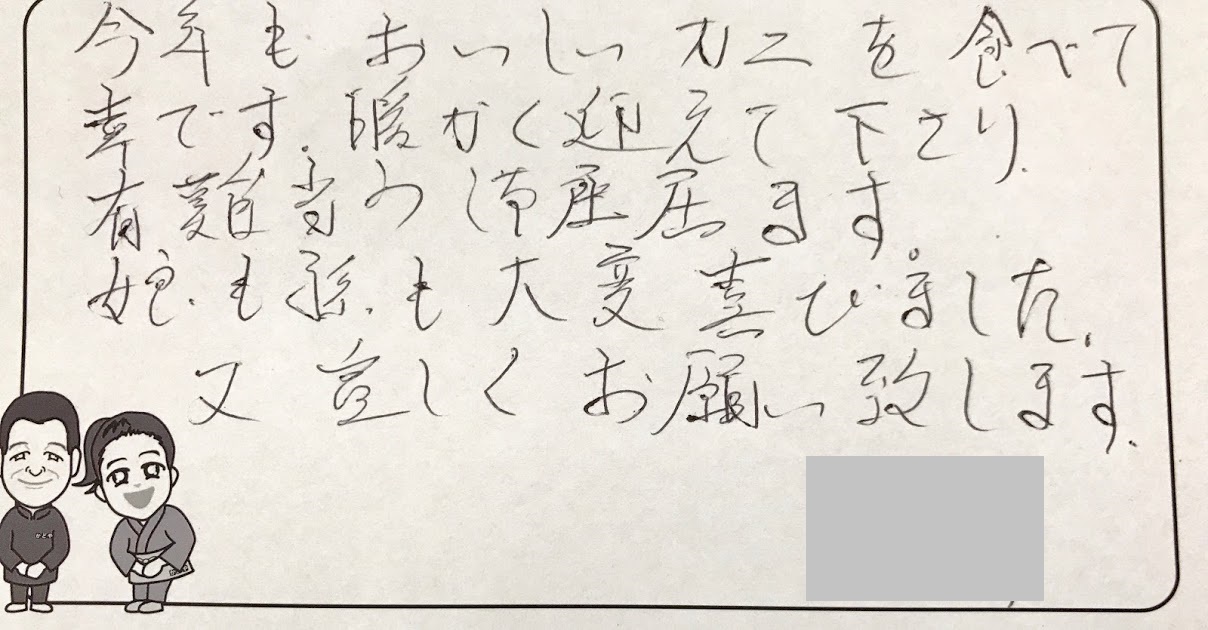 今年もおいしいカニを食べて
幸です.暖かく迎えて下さり.
有難当う御座居ます。
娘.も孫.も大変喜びました.
又宜しくお願い致します.